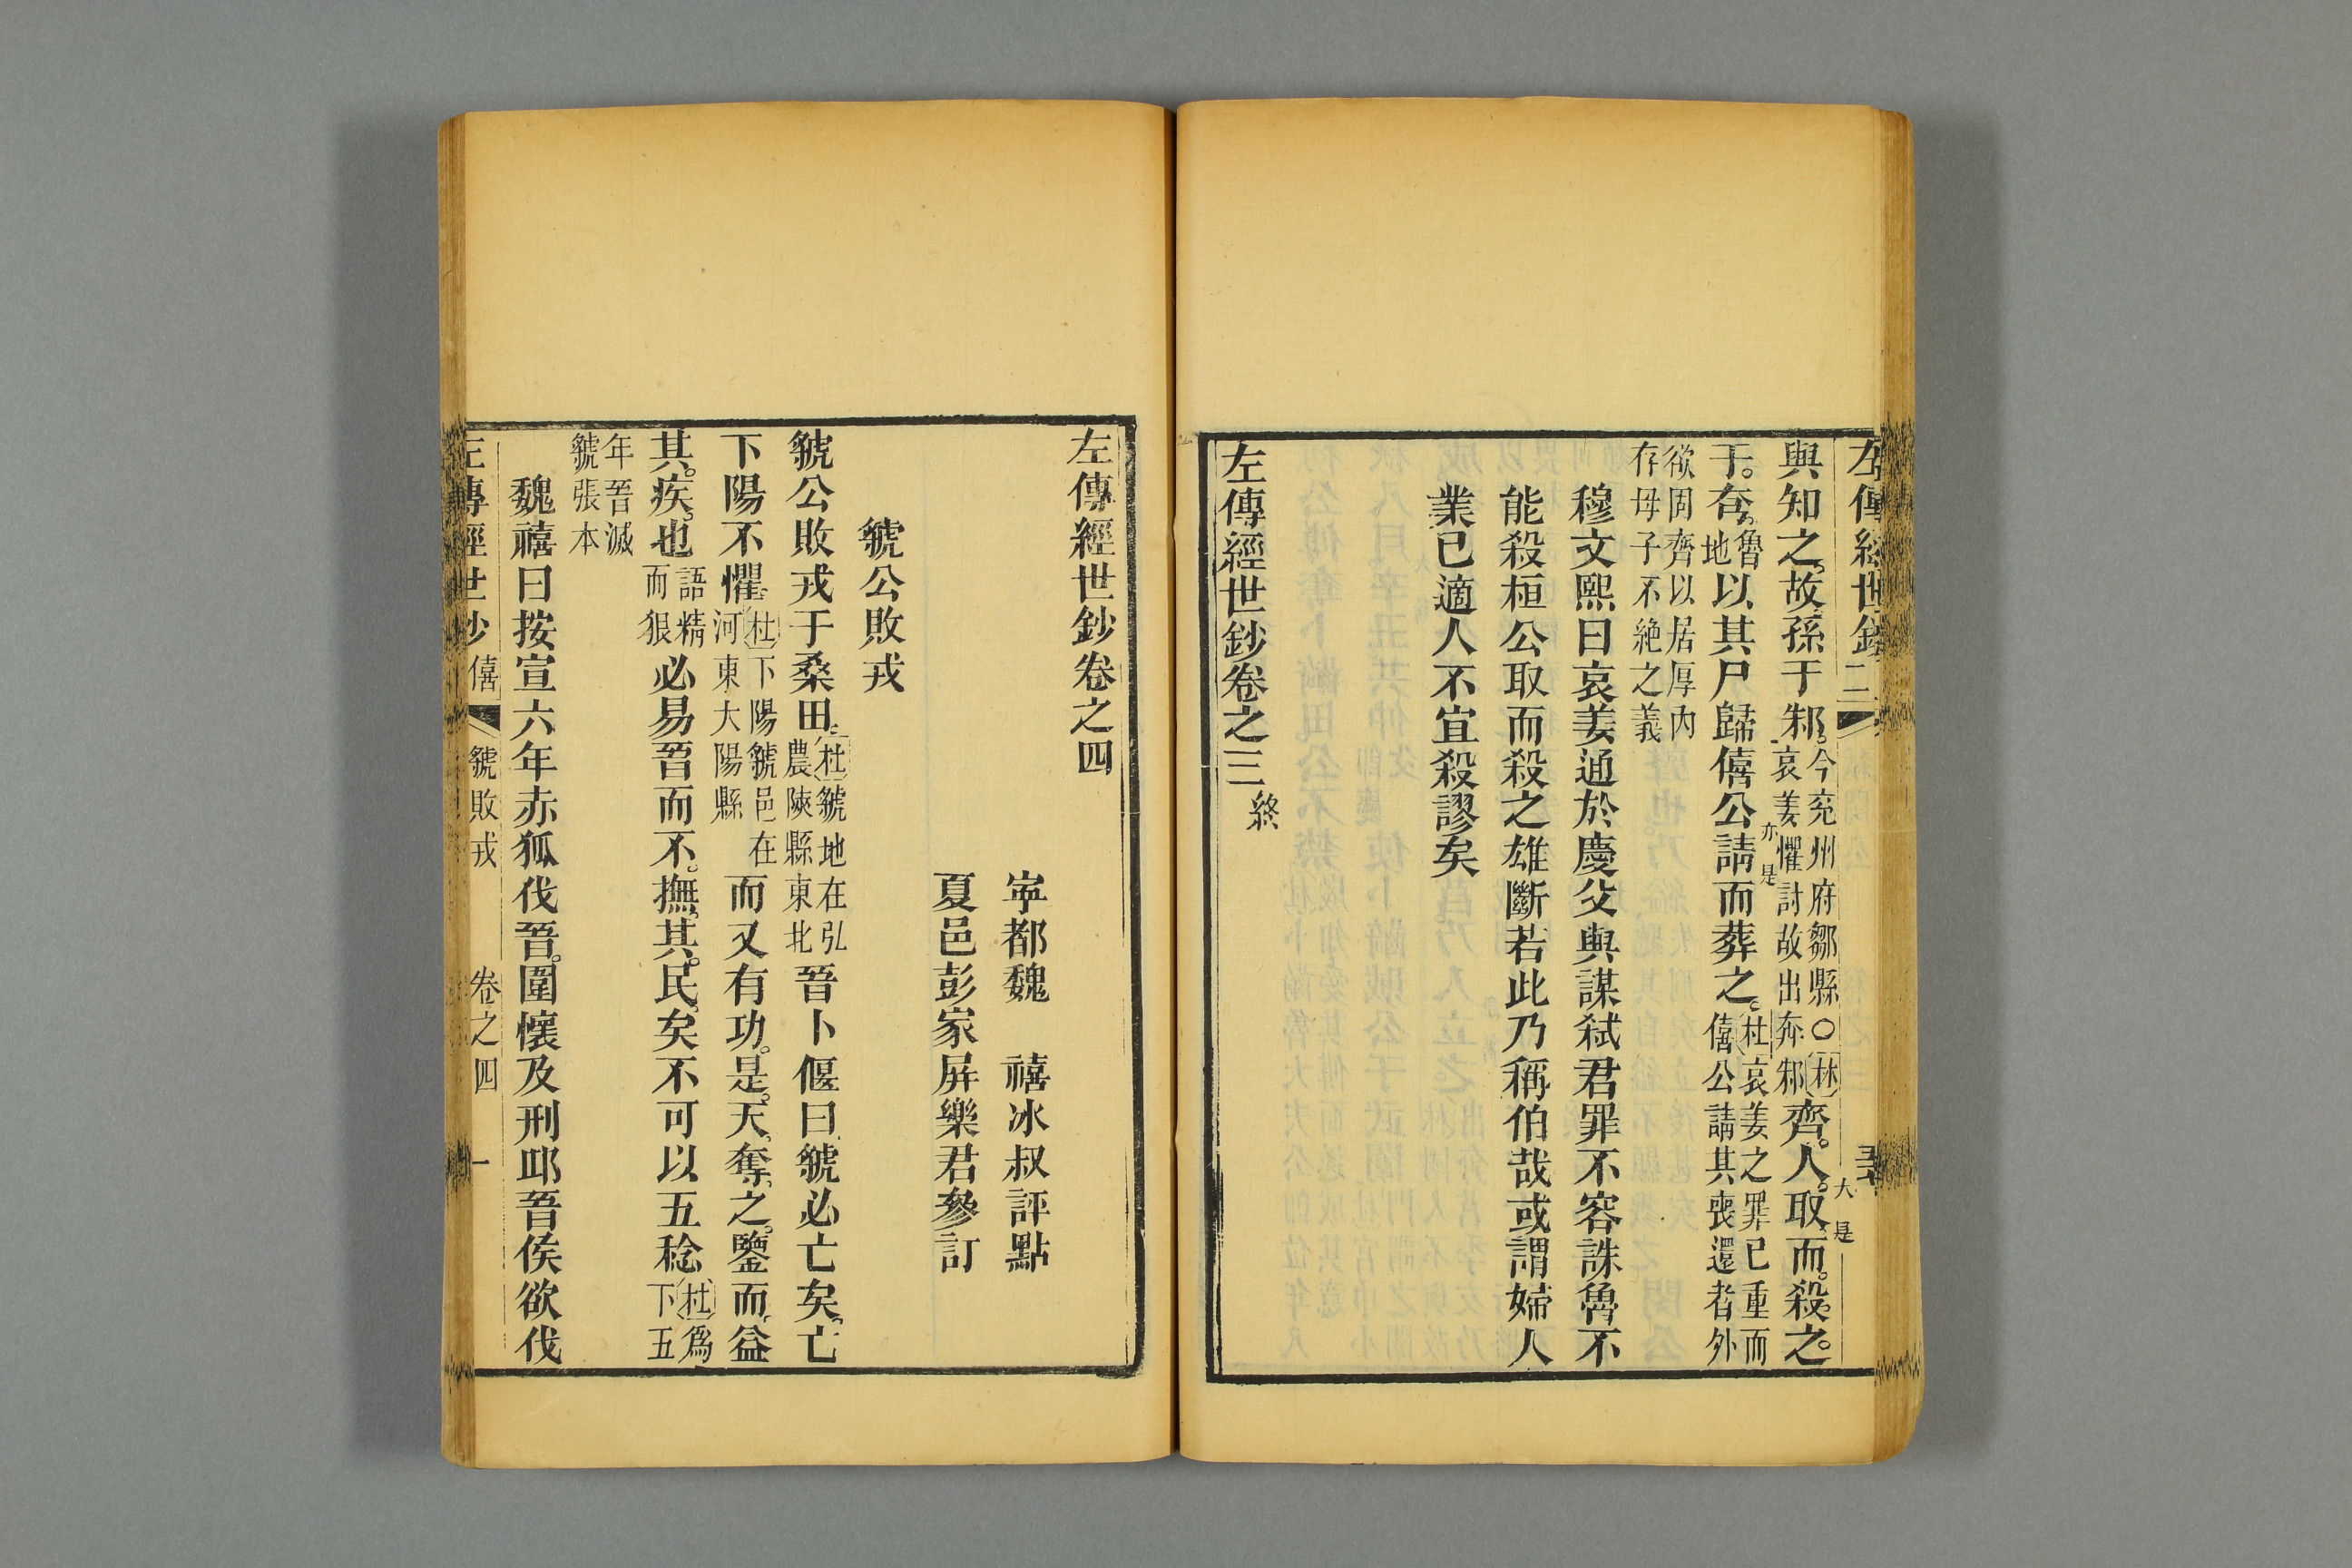 左傳經世鈔
與知之故孫于邾今兖州府鄒縣〇林
哀姜懼討故出奔邾齊人取而殺之
大是
于夷魯地以其尸歸僖公請而葬之杜哀姜之罪已重而
僖公請其喪還者外
亦是
欲固齊以居厚內
存母子不絶之義
穆文熙曰哀姜通於慶父與謀弑君罪不容誅魯不
能殺桓公取而殺之雄斷若此乃稱伯哉或謂婦人
業已適人不宜殺謬矣
左傳經世鈔卷之三終
左傳經世鈔卷之四
寧都魏 禧冰叔評點
夏邑彭家屏樂君參訂
虢公敗戎
虢公敗戎于桑田杜虢地在弘
農陝縣東北晉卜偃曰虢必亡矣亡
下陽不懼杜下陽虢邑在
河東大陽縣而又有功是天奪之鑒而益
其疾也語精
而狠必易晉而不撫其民矣不可以五稔杜爲
下五
年晉滅
虢張本
魏禧曰按宣六年赤狐伐晉圍懷及刑邱晉侯欲伐
左傳經世鈔 僖 虢敗戎 卷之四 一